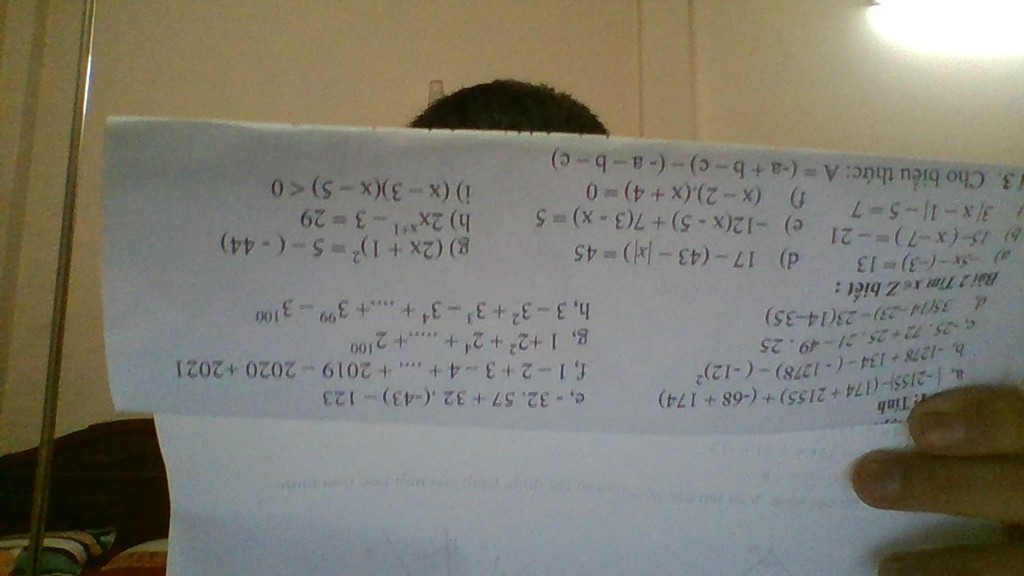 1: Tính
a, | -2155|-(174 + 2155) + (-68 + 174)
b, -1278 + 134 – ( - 1278) – ( -12)²
c, -25. 72 + 25. 21 – 49 . 25
d, 35(14 -23) – 23(14–35)
e, - 32. 57 + 32 .(-43) – 123
f, 1 – 2 + 3 – 4 + .... + 2019 – 2020 +2021
g, 1 +2² + 2⁴ + ..... + 2¹⁰⁰
h, 3 – 3² + 3³ – 3⁴ + ....+ 3⁹⁹ – 3¹⁰⁰
Bài 2 Tìm x ∈ Z biết :
a) -5x – (–3) = 13
b) 15– ( x –7 ) = – 21
3|x – 1| – 5 = 7
d) 17 – (43 – |x|) = 45
e) –12(x - 5) + 7(3 - x) = 5
f) (x – 2).(x + 4) = 0
g) (2x + 1)² = 5 – ( - 44)
h) 2xˣ⁺¹ – 3 = 29
i) (x – 3)(x – 5) < 0
3. Cho biểu thức: A = (-a + b – c) – (- a – b – c)